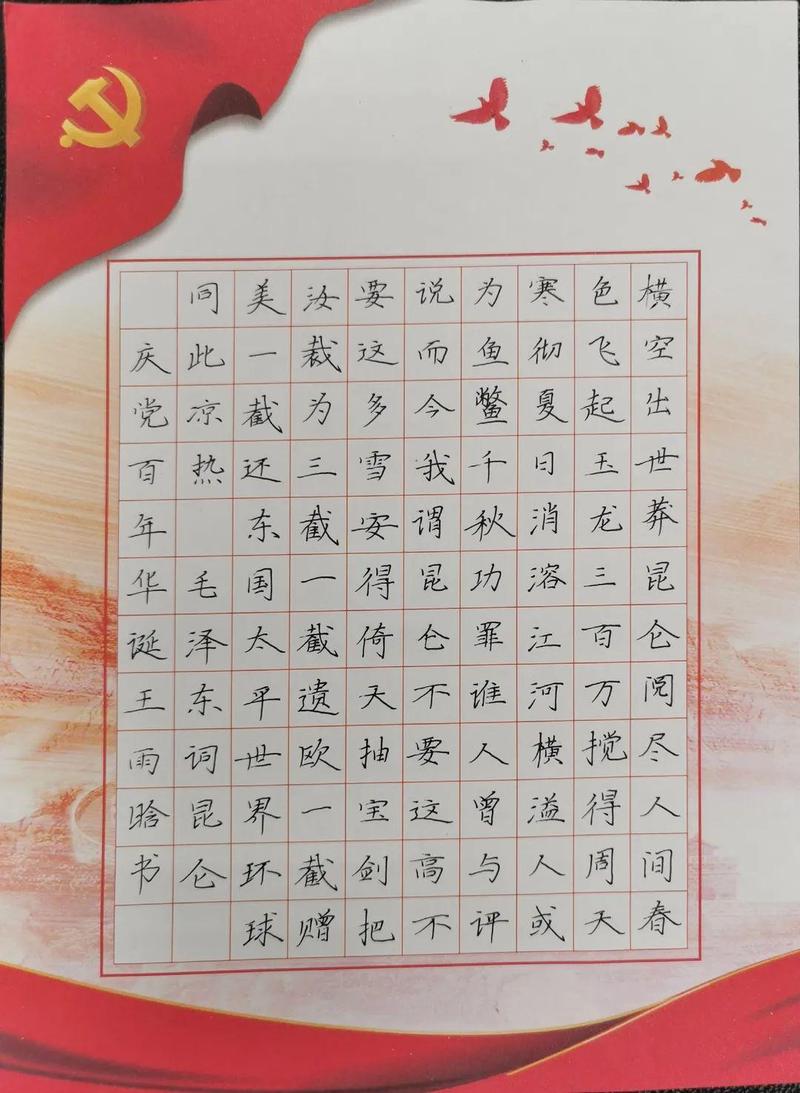 横空出世莽昆仑阅尽人间春
色飞起玉龙三百万搅得周天
寒彻夏日消溶江河横溢人或
为鱼鳖千秋功罪谁人曾与评
说而今我谓昆仑不要这高不
要这多雪安得倚天抽宝剑把
汝裁为三截一截遗欧一截赠
美一截还东国太平世界环球
同此凉热 毛泽东词昆仑
庆党百年华诞王雨晗书